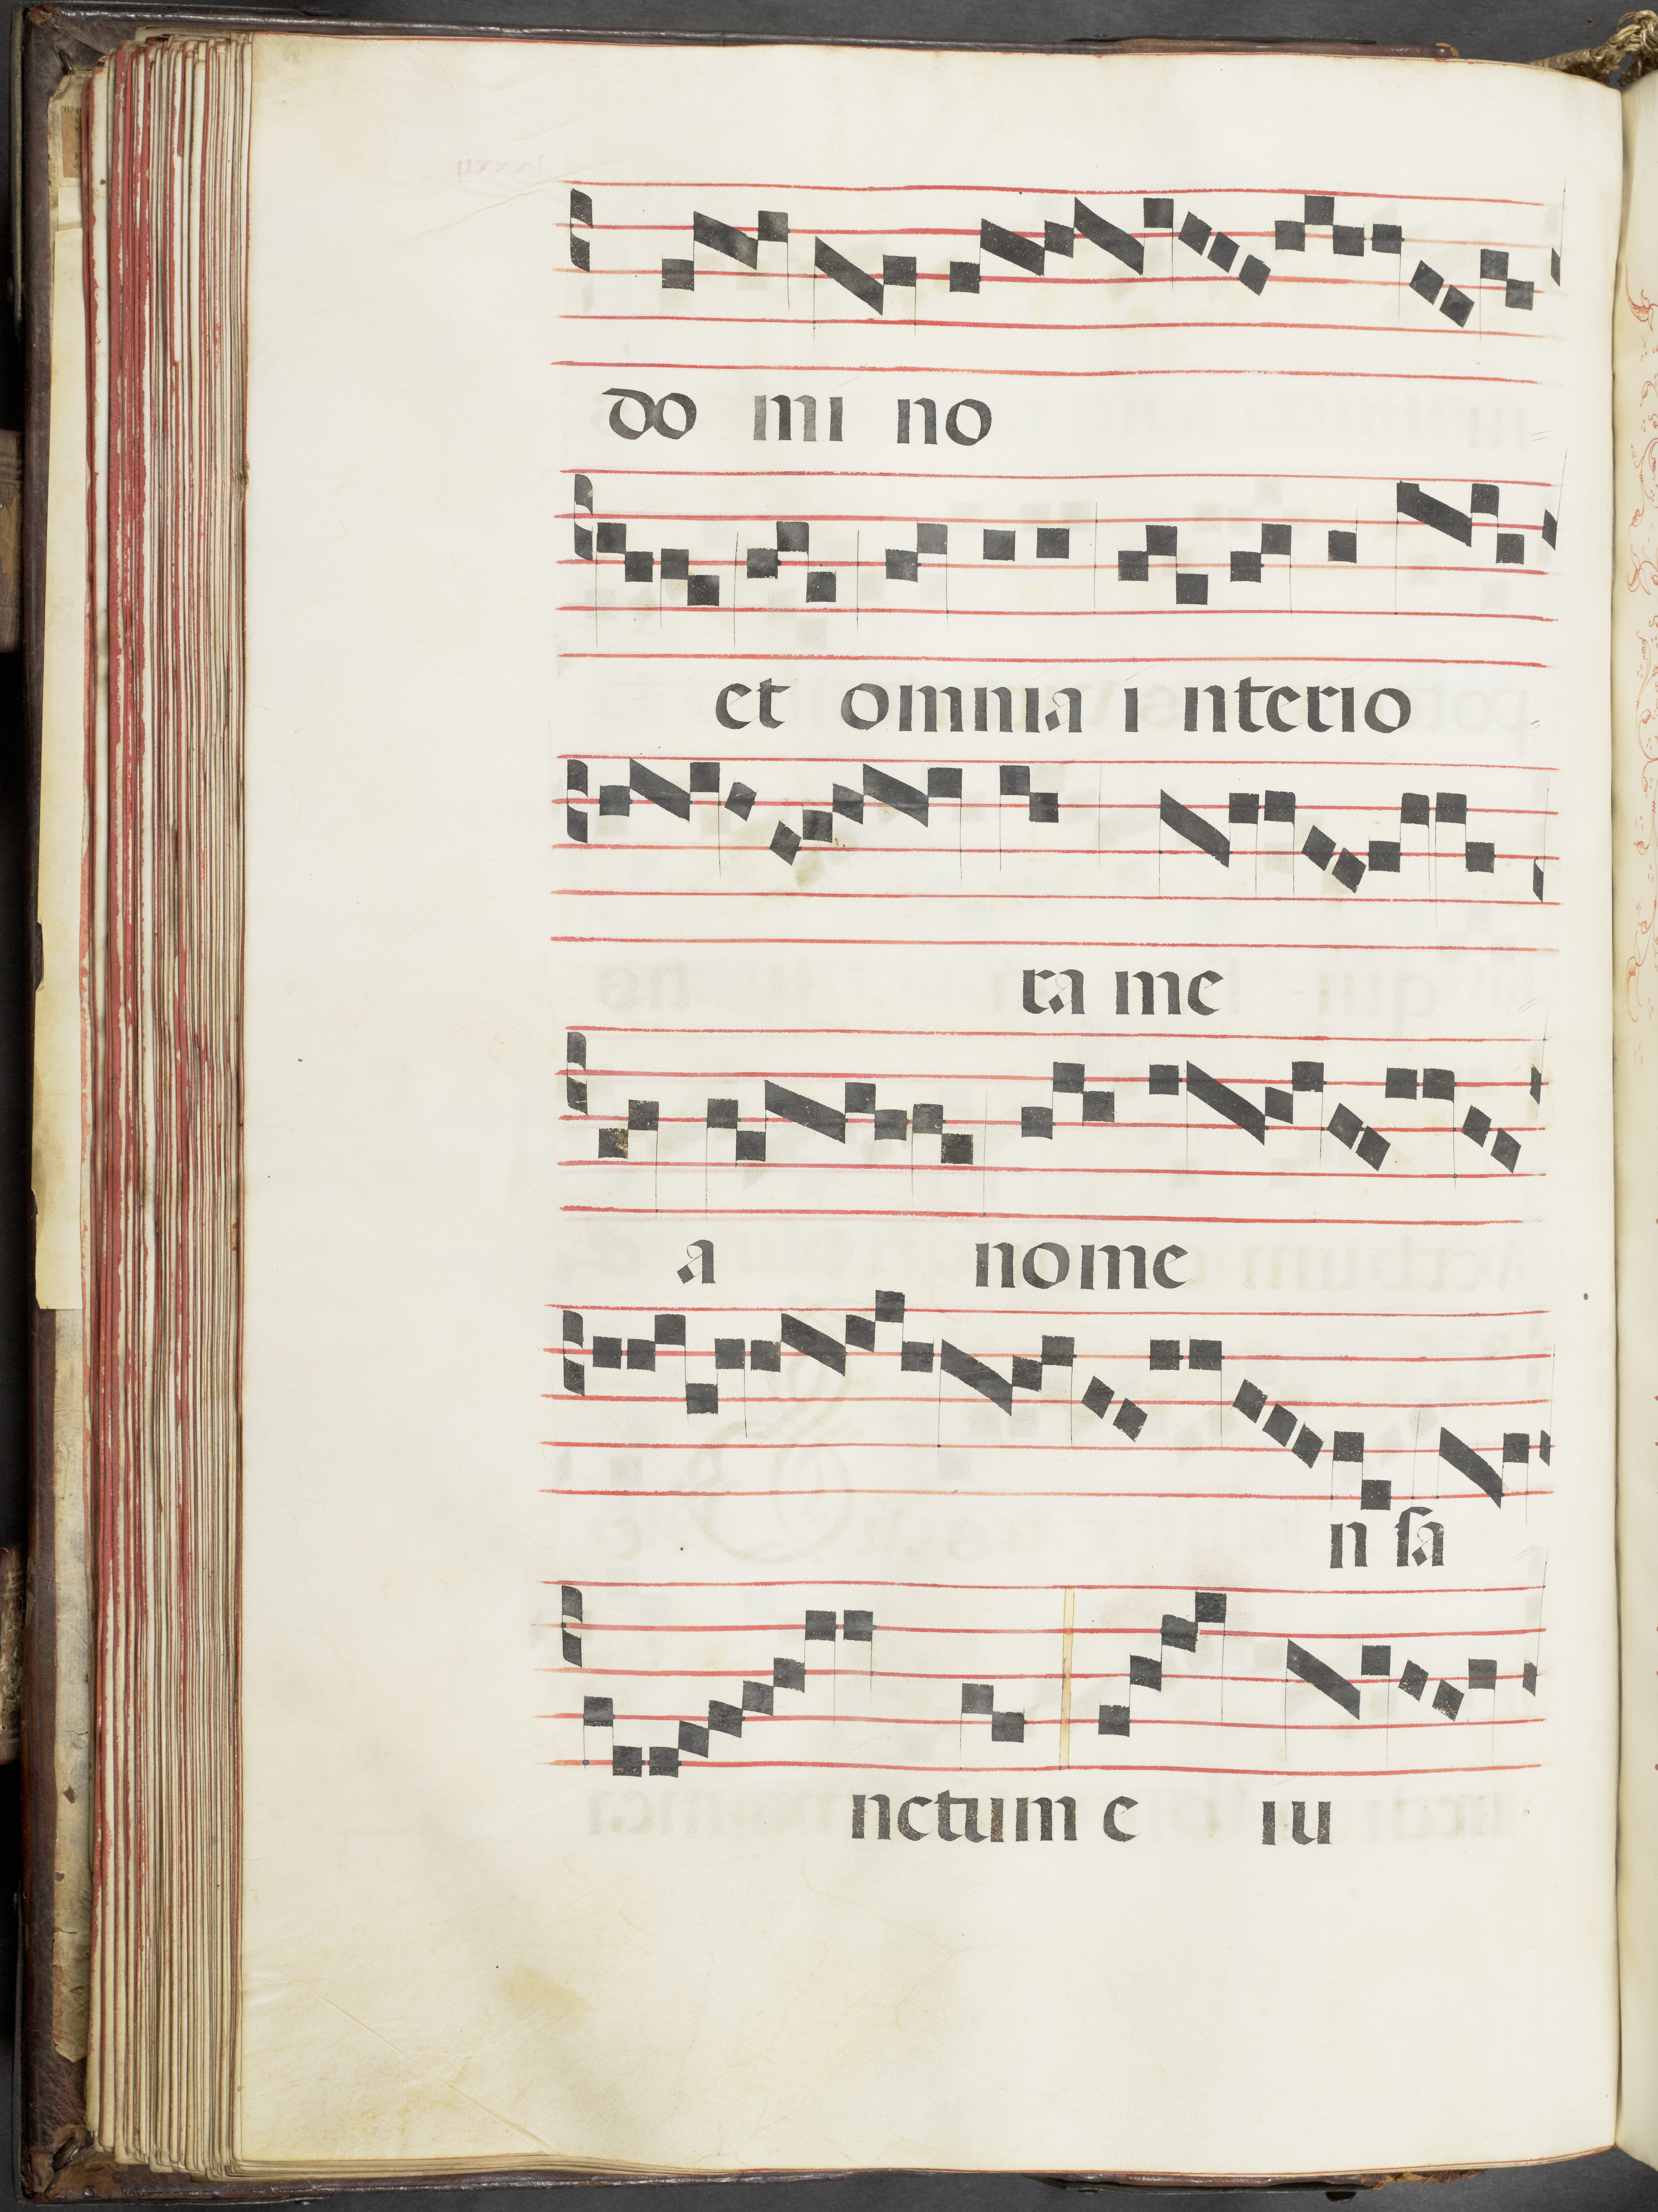 do mi no
et omnia i nterio
ra me
a nome
n sa
nctum e iu